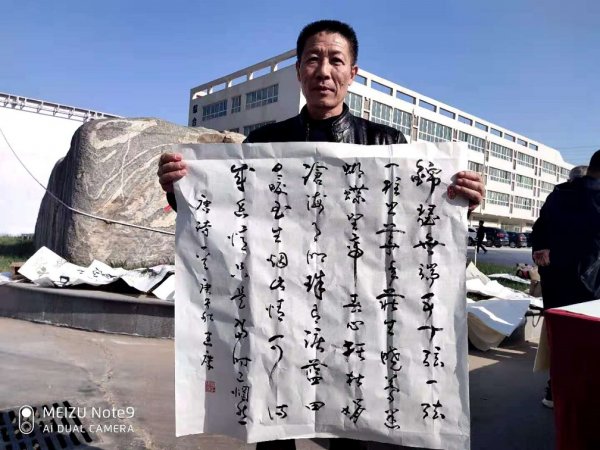 錦瑟無端五十弦一弦
一柱思華年莊生曉夢迷
蝴蝶望帝春心托杜鵑
滄海月明珠有淚藍田
日暖玉生烟此情可待
成追憶只是當時已惘然
唐詩一首庚子秋
MEIZU Note9
AI DUAL CAMERA